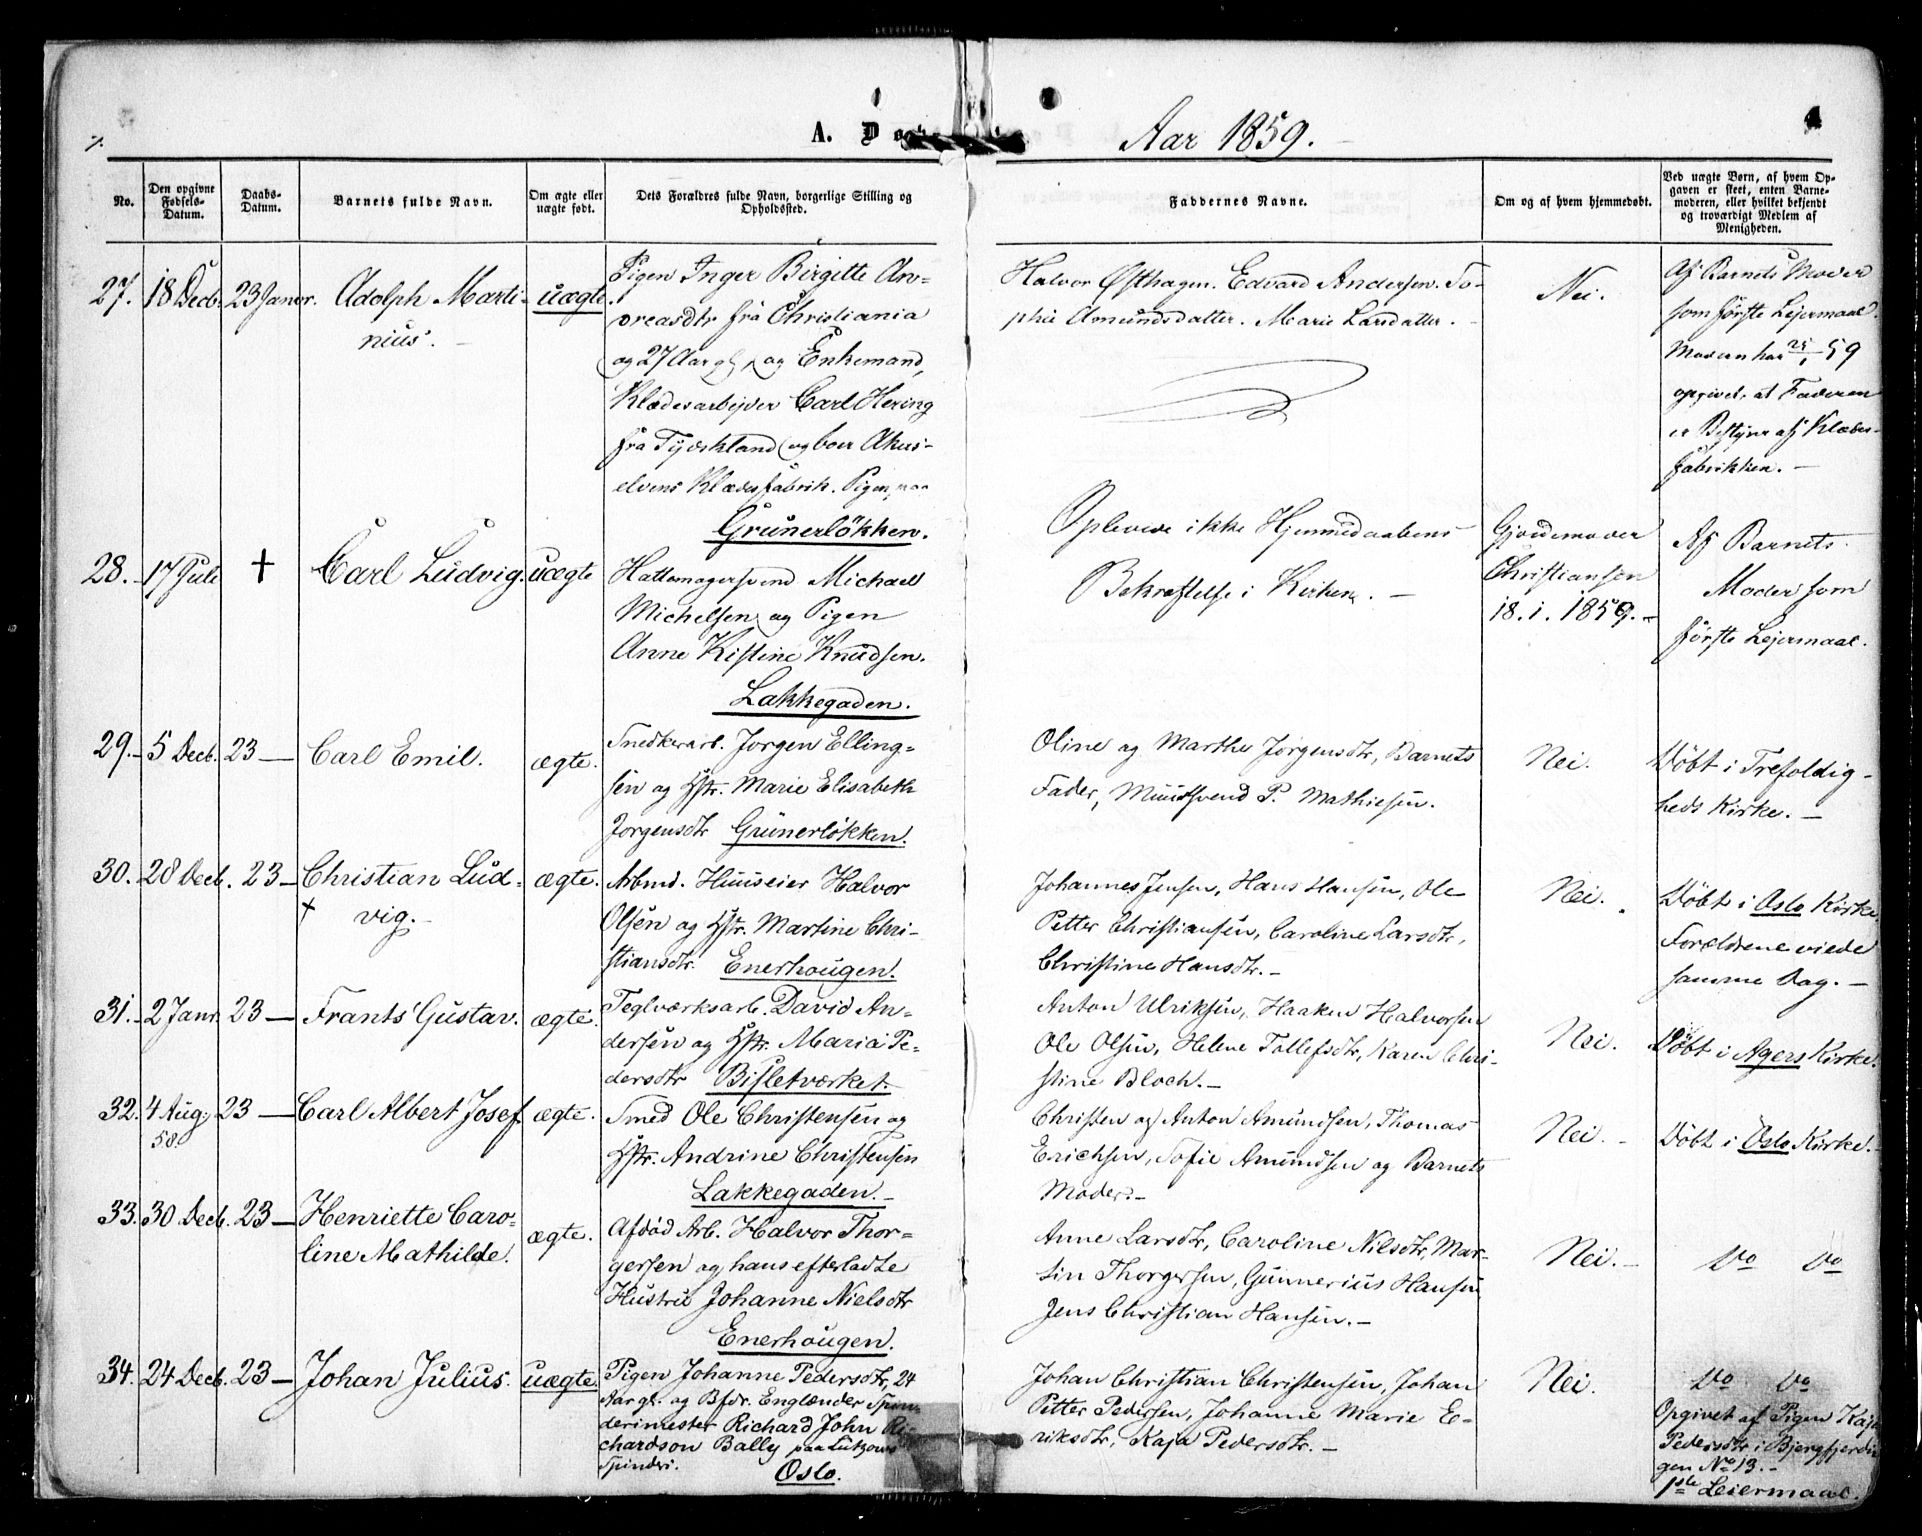 A. Do
Aar 1859.
4
No.
Den opgivne Fødsels-Datum.
Daabs-Datum.
Barnets fulde Navn.
Om ægte eller uægte født.
Dets Forældres fulde Navn, borgerlige Stilling og Opholdssted.
Faddernes Navne.
Om og af hvem hjemmedøbt.
Ved uægte Børn, af hvem Opgaven er skeet, enten Barnemoderen, eller hvilket bekjendt og troværdigt Medlem af Menigheden.
27. 18 Decb. 23 Janr. Adolph Marti-
nius.
uægte
Pigen Inger Birgitte An-
dreasdtr fra Christiania
og 27 Aar gl, og Enkemand,
Klædesarbejder Carl Hering
fra Tydskland og boer Akers-
elvens Klædesfabrik. Pigen paa
Grünerløkken.
Halvor Østhagen. Edvard Andersen. So-
phie Amundsdatter. Marie Larsdatter.
Nei.
Af Barnets Moder
som første Lejermaal.
Moderen har 25/1 59
opgivet, at Faderen
er Bestyrer af Klædes-
fabrikken. —
28. 17 Juli † Carl Ludvig. uægte
Hattemagersvend Michael
Michelsen og Pigen
Anne Kistine Knudsen.
Lakkegaden.
Oplevede ikke Hjemmedaabens
Bekræftelse i Kirken. —
Gjordemoder
Christiansen
18. 1. 1859. —
Af Barnets
Moder som
første Lejermaal.
29. 5 Decb. 23 — Carl Emil. ægte.
Snedkerarb. Jørgen Elling-
sen og Hstr. Marie Elisabeth
Jørgensdtr Grünerløkken.
Oline og Marthe Jørgensdtr, Barnets
Fader, Muursvend P. Mathiesen.
Nei.
Döbt i Trefoldig-
heds Kirke. —
30. 28 Decb. 23 — Christian Lud-
† vig. —
ægte.
Arbmd. Huuseier Halvor
Olsen og Hstr. Martine Chri-
stiansdtr. Enerhougen.
Johannes Jensen, Hans Hansen, Ole
Petter Christiansen, Caroline Larsdtr,
Christine Hansdtr. —
Nei.
Döbt i Oslo Kirke.
Forældrene viede
samme Dag. —
31. 2 Janr. 23 — Frants Gustav. ægte.
Teglværksarb. David An-
dersen og Hstr. Maria Pe-
dersdtr Bisletværket.
Anton Ulriksen, Haaken Halvorsen
Ole Olsen, Helene Tollefsdtr, Karen Chri-
stine Bloch. —
Nei.
Döbt i Agers Kirke.
32. 4 Aug. 23 — Carl Albert Josef. ægte.
58.
Smed Ole Christensen og
Hstr. Andrine Christensen
Lakkegaden. —
Christen og Anton Amundsen, Thomas
Erichsen, Sofie Amundsen og Barnets
Moder. —
Nei. —
Döbt i Oslo Kirke. —
33. 30 Decb. 23 — Henriette Caro-
line Mathilde.
ægte.
Afdød Arb. Halvor Thor-
gersen og hans efterladte
Hustru Johanne Nielsdtr
Enerhougen.
Anne Larsdtr, Caroline Nilsdtr, Mar-
tin Thorgersen, Gunnerius Hansen
Jens Christian Hansen. —
Nei. —
Do Do
34. 24 Decb. 23 — Johan Julius. uægte.
Pigen Johanne Pedersdtr, 24
Aar gl. og Bfdr. Englænder Spin-
derimester Richard John Ri-
chardson Bally paa Lützows
Spinderi. Oslo.
Johan Christian Christensen, Johan
Petter Pedersen, Johanne Marie E-
riksdtr, Kaja Pedersdtr. —
Nei.
Do Do
Opgivet af Pigen Kaja
Pedersdtr i Bjergfjerdin-
gen No 13. —
1ste Leiermaal.